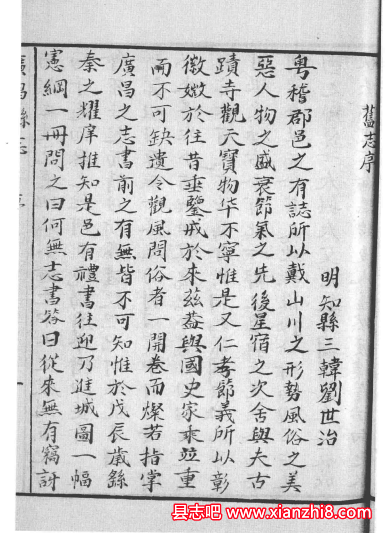 舊志序
明知縣三韓劉世治
粵稽郡邑之有誌所以載山川之形勢風俗之美
惡人物之盛衰節氣之先後星宿之次舍與夫古
蹟寺觀天寶物华不寧惟是又仁孝節義所以彰
徵媺於往昔垂鑒戒於來茲葢與國史家乘竝重
而不可缺遺令觀風問俗者一開卷而燦若指掌
廣昌之志書前之有無皆不可知惟於戊辰歲餘
秦之耀庠推知是邑有禮書往迎乃進城圖一幅
憲綱一冊問之曰何無志書答曰從來無有竊訝
廣昌縣志
序
县志吧 www.xianzhi8.com
县志吧 www.xianzhi8.com